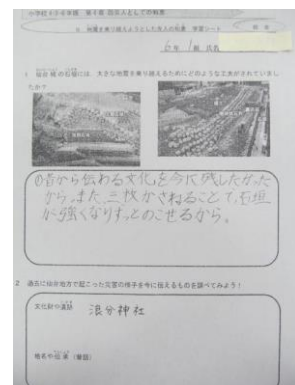 6年 1組 氏名
1 仙台城の石垣には、大きな地震を乗り越えるためにどのような工夫がされていましたか？
①昔から伝わる文化を今に残したかった
から。また、三枚かさねることで、石垣
が強くなりずっとのこせるから。
2 過去に仙台地方で起こった災害の様子を今に伝えるものを調べてみよう！
文化財や遺跡 浪分神社
地名や伝承（昔話）